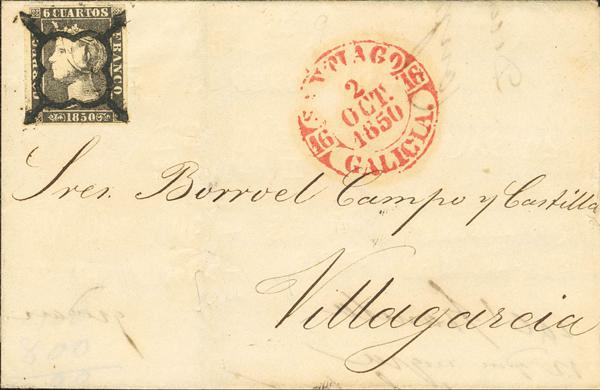 6 CUARTOS
FRANCO
1850
SANTIAGO
2
OCT.
1850
16
16
GALICIA
Sres. Borroel Campo y Castilla
Villagarcia